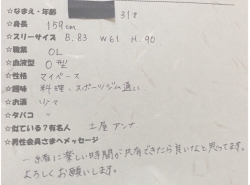 ☆なまえ・年齢 31才
☆身長 159cm
☆スリーサイズ B.83 W61 H.90
☆職業 OL
☆血液型 O型
☆性格 マイペース
☆趣味 料理、スポーツジム通い
☆お酒 少々
☆タバコ 〃
☆似ている?有名人 土屋アンナ
☆男性会員さまへメッセージ
一緒に楽しい時間が共有できたら良いなと思ってます。
よろしくお願いします。